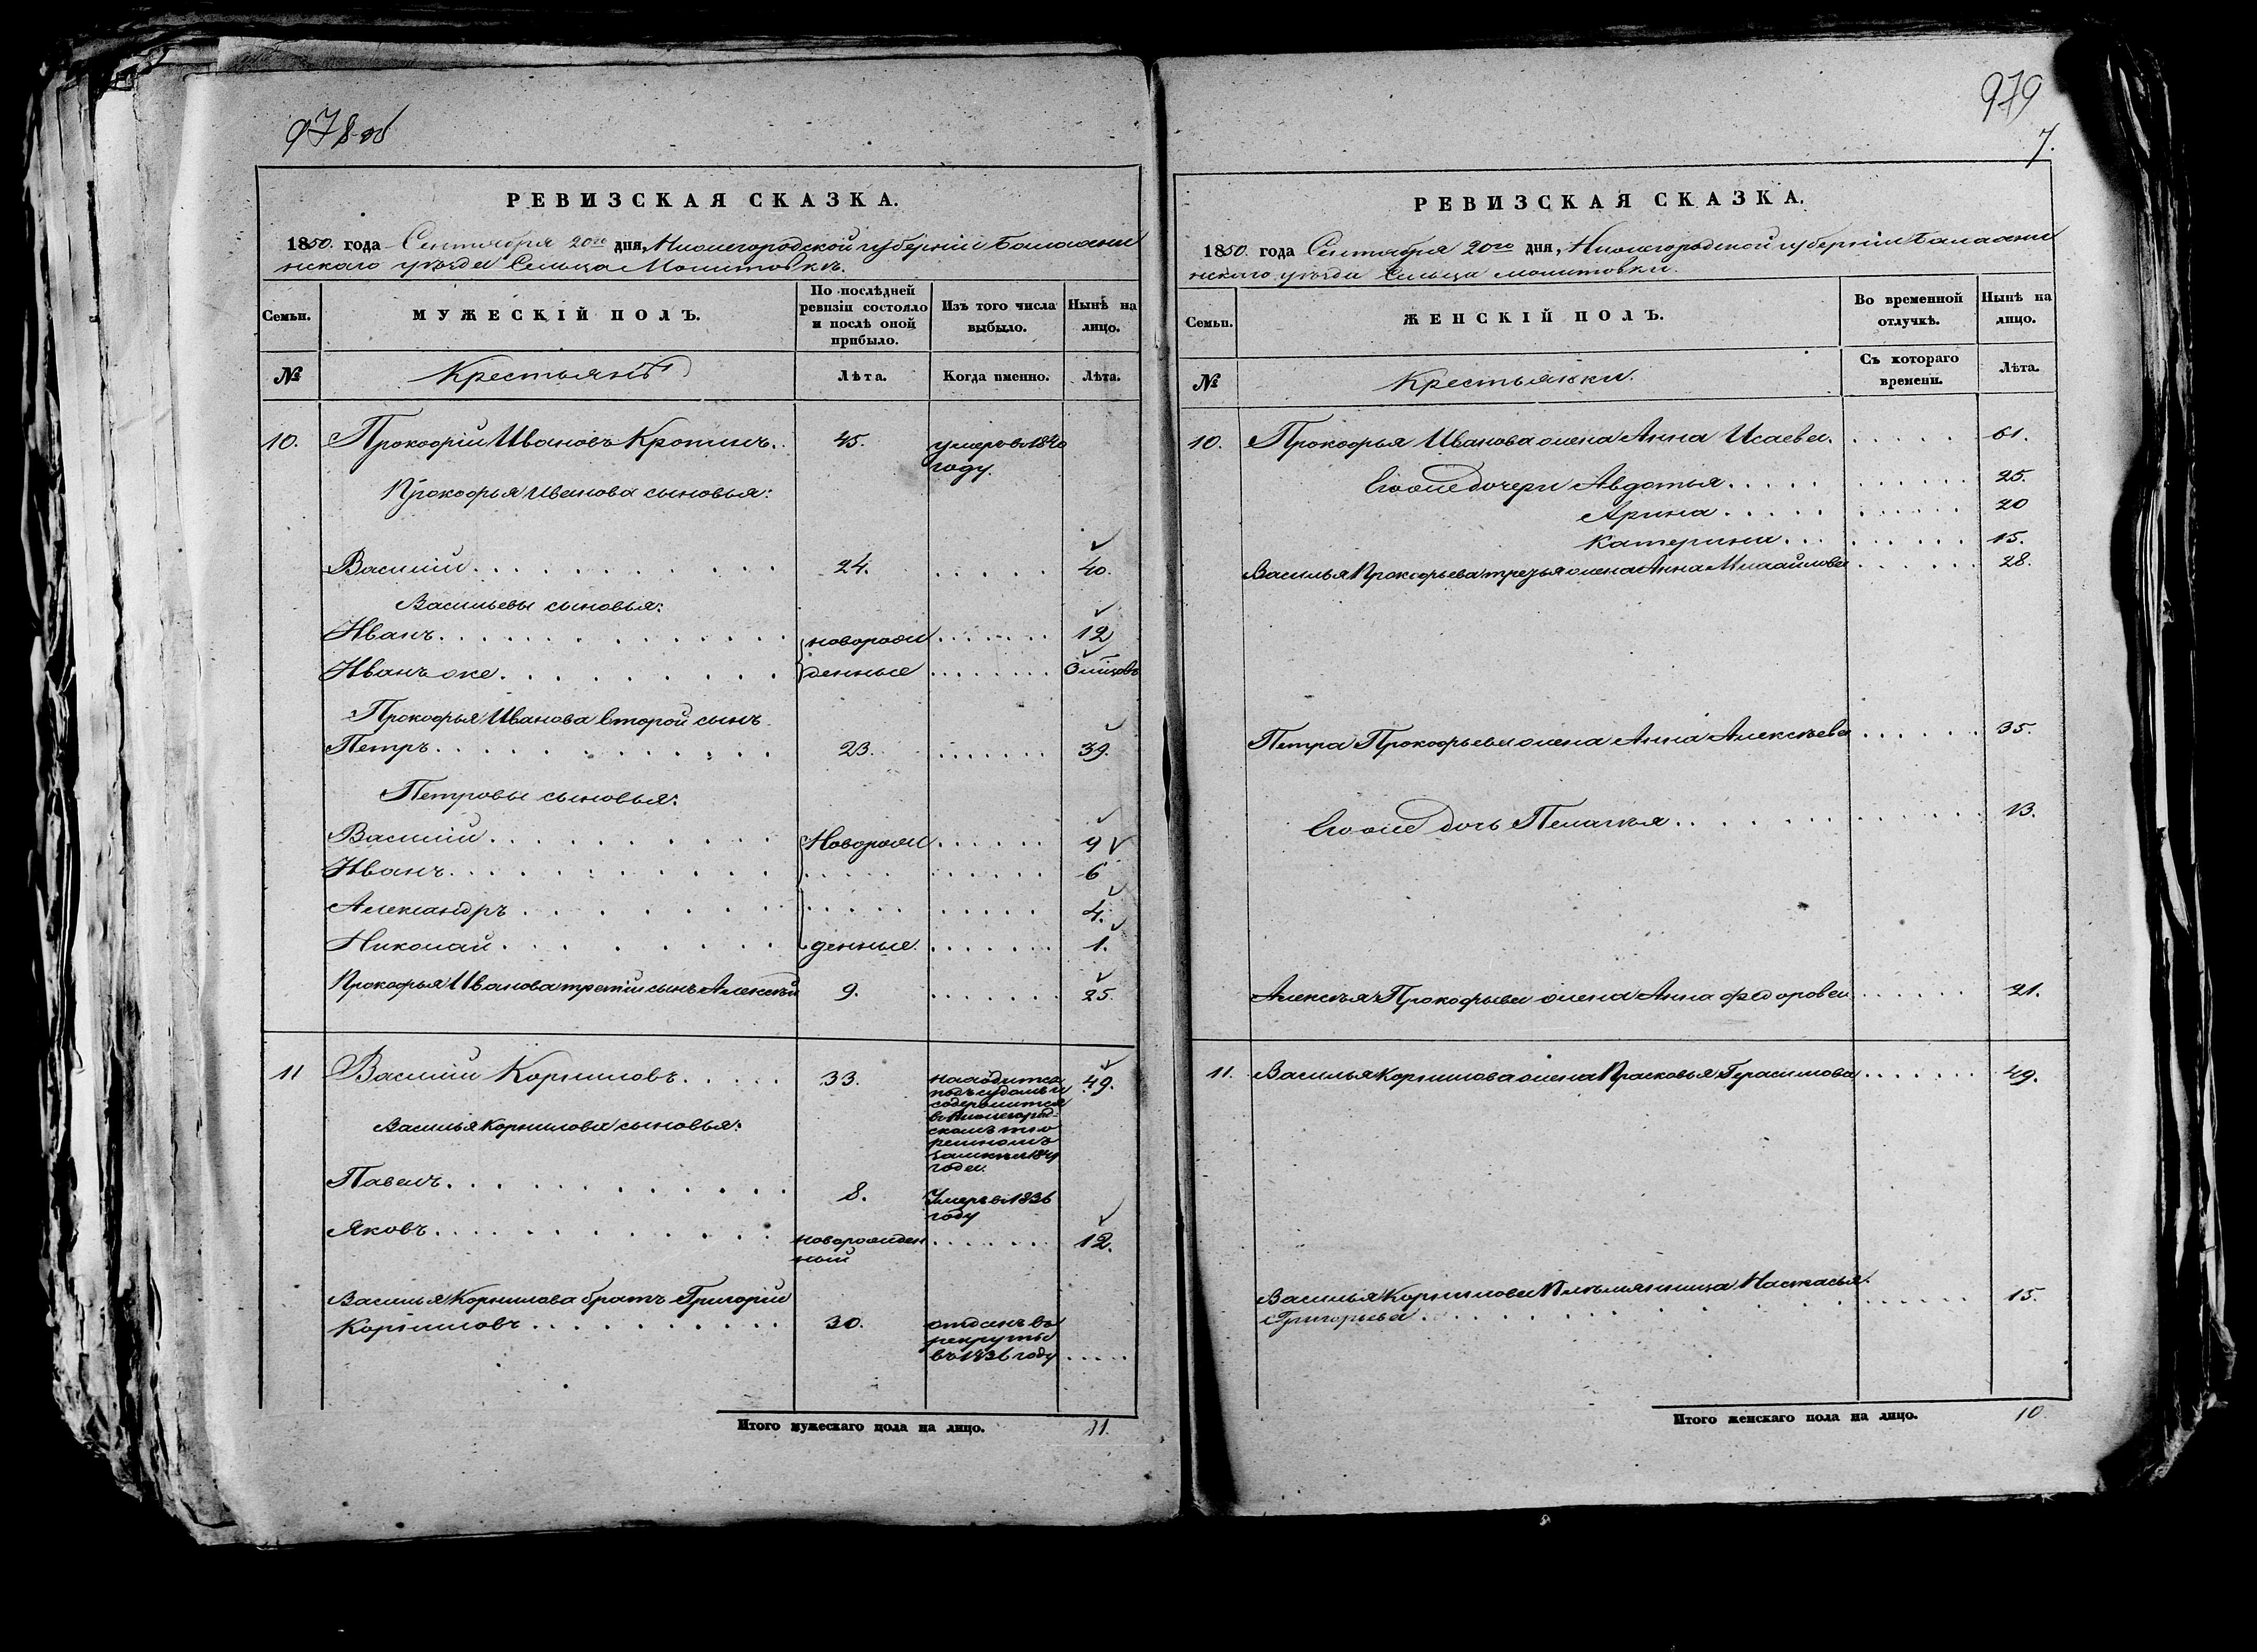 978 об
РЕВИЗСКАЯ СКАЗКА.
1850. года Сентября 20го дня, Нижегородской губерніи Балахни
нскаго уѣзда Сельца Молитовкѣ.
Семьи.
МУЖЕСКІЙ ПОЛЪ.
По послѣдней ревизіи состояло и послѣ оной прибыло.
Изъ того числа выбыло.
Нынѣ на лицо.
№
Крестьянѣ
Лѣта.
Когда именно.
Лѣта.
10. Прокофій Ивановъ Кротинъ. 45. умеръ в 1840
году.
Прокофья Иванова сыновья:
Василій 24. 40.
Васильевы сыновья:
Иванъ новорож 12
Иванъ же денные
Прокофья Иванова второй сынъ
Петръ 23. 39.
Петровы сыновья:
Василій Новорож 9
Иванъ 6
Александръ 4.
Николай денные 1.
Прокофья Иванова третій сынъ Алексѣй 9. 25.
11 Василій Корниловъ 33. находится 49.
подъ судомъ и
содержится
в Нижегород-
скомъ тю
ремномъ
замкѣ с 1849
года.
Василья Корнилова сыновья:
Павелъ 8. Умеръ в 1836
году
Яковъ новорожден 12.
ный
Василья Корнилова братъ Григорій
Корниловъ 30. отданъ въ
рекруты
въ 1836 году
Итого мужескаго пола на лицо. 11.
979
7.
РЕВИЗСКАЯ СКАЗКА.
1850. года Сентября 20го дня, Нижегородской губерніи Балахни
нскаго уѣзда Сельца Молитовки.
Семьи.
ЖЕНСКІЙ ПОЛЪ.
Во временной отлучкѣ.
Нынѣ на лицо.
№
Крестьянки.
Съ котораго времени.
Лѣта.
10. Прокофья Иванова жена Анна Исаева. 61.
Его же дочери Авдотья 25.
Арина 20
Катерина 15.
Василья Прокофьева третья жена Анна Михайлова 28.
Петра Прокофьева жена Анна Алексѣева 35.
Его же дочь Пелагья 13.
Алексѣя Прокофьева жена Анна Федорова 21.
11. Василья Корнилова жена Прасковья Герасимова 49.
Василья Корнилова Племянница Настасья
Григорьева 15.
Итого женскаго пола на лицо. 10.